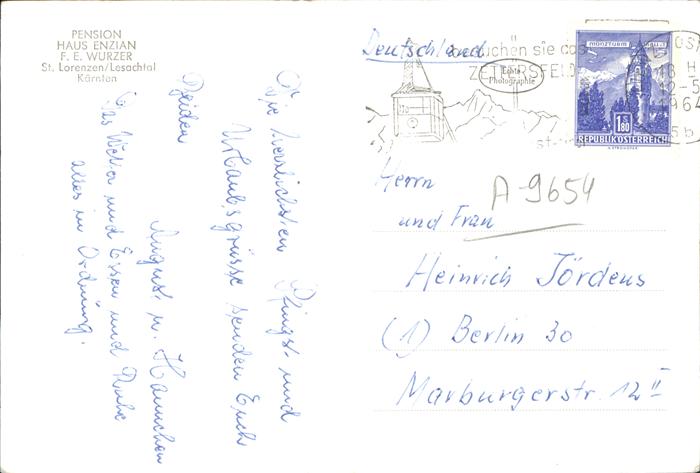 PENSION
HAUS ENZIAN
F. E. WURZER
St. Lorenzen/Lesachtal
Kärnten
Die herzlichsten Pfingst- und
Urlaubsgrüsse senden Euch
Beiden
August u. Hannchen
Das Wetter und Essen und Ruhe
alles in Ordnung.
Deutschland
suchen sie das
ZETTERSFELD
Echte
Photographie
MÜNZTURM
1.80
REPUBLIK ÖSTERREICH
12-5
1964
5b
A-9654
Herrn
und Frau
Heinrich Jördens
(1) Berlin 30
Marburgerstr. 12 II